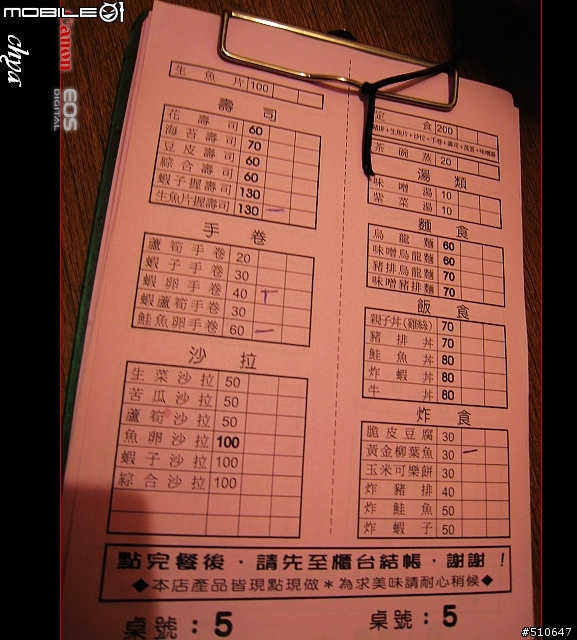 MOBILE01
chya
Canon
EOS
DIGITAL
生魚片 100
壽司
花壽司 60
海苔壽司 70
豆皮壽司 60
綜合壽司 60
蝦子握壽司 130
生魚片握壽司 130
手卷
蘆筍手卷 20
蝦子手卷 30
蝦卵手卷 40
蝦蘆筍手卷 30
鮭魚卵手卷 60
沙拉
生菜沙拉 50
苦瓜沙拉 50
蘆筍沙拉 50
魚卵沙拉 100
蝦子沙拉 100
綜合沙拉 100
定食 200
豬排+生魚片+沙拉+手卷+壽司+蒸蛋+味噌湯
茶碗蒸 20
湯類
味噌湯 10
紫菜湯 10
麵食
烏龍麵 60
味噌烏龍麵 60
豬排烏龍麵 70
味噌豬排麵 70
飯食
親子丼(雞絲) 70
豬排丼 70
鮭魚丼 80
炸蝦丼 80
牛丼 80
炸食
脆皮豆腐 30
黃金柳葉魚 30
玉米可樂餅 30
炸豬排 40
炸魚 50
炸蝦子 50
點完餐後，請先至櫃台結帳，謝謝！
◆本店產品皆現點現做＊為求美味請耐心稍候◆
桌號：5
桌號：5
#510647